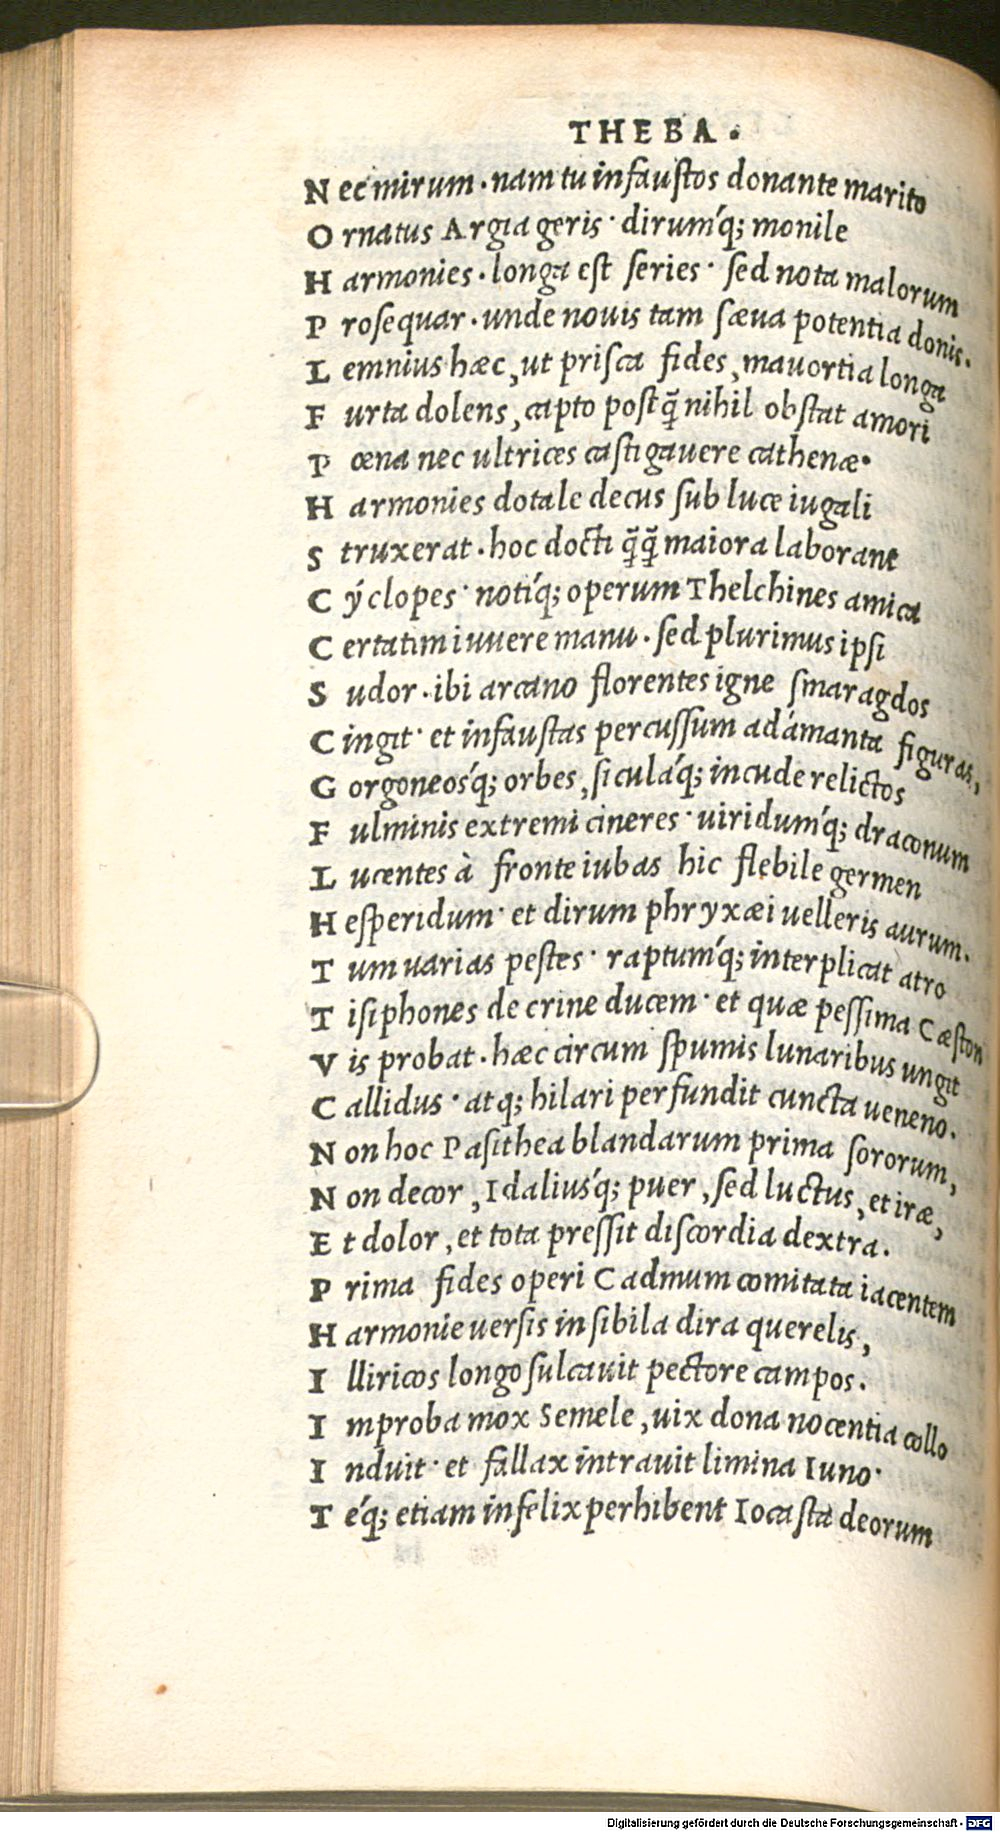 THEBA.
Nec mirum. nam tu infaustos donante marito
Ornatus Argia geris· dirumq́; monile
Harmonies. longa est series· sed nota malorum
Prosequar. unde nouis tam sæua potentia donis.
Lemnius hæc, ut prisca fides, mauortia longa
Furta dolens, capto postq̃ nihil obstat amori
Pœna nec ultrices castigauere cathenæ·
Harmonies dotale decus sub luce iugali
Struxerat. hoc docti q̃q̃ maiora laborant
Cýclopes· notíq; operum Thelchines amica
Certatim iuuere manu. sed plurimus ipsi
Sudor. ibi arcano florentes igne smaragdos
Cingit· et infaustas percussum adámanta figuras,
Gorgoneosq́; orbes, siculaq́; incude relictos
Fulminis extremi cineres· uiridumq́; draconum
Lucentes à fronte iubas hic flebile germen
Hesperidum· et dirum phryxæi uelleris aurum.
Tum uarias pestes· raptumq́; interplicat atro
Tisiphones de crine ducem· et quæ pessima Cæston
Vis probat. hæc circum spumis lunaribus ungit
Callidus· atq; hilari perfundit cuncta ueneno.
Non hoc Pasithea blandarum prima sororum,
Non decor, Idaliusq́; puer, sed luctus, et iræ,
Et dolor, et tota pressit discordia dextra.
Prima fides operi Cadmum comitata iacentem
Harmonie uersis in sibila dira querelis,
Illiricos longo sulcauit pectore campos.
Improba mox Semele, uix dona nocentia collo
Induit· et fallax intrauit limina Iuno·
Teq́; etiam infelix perhibent Iocasta deorum
Digitalisierung gefördert durch die Deutsche Forschungsgemeinschaft - DFG